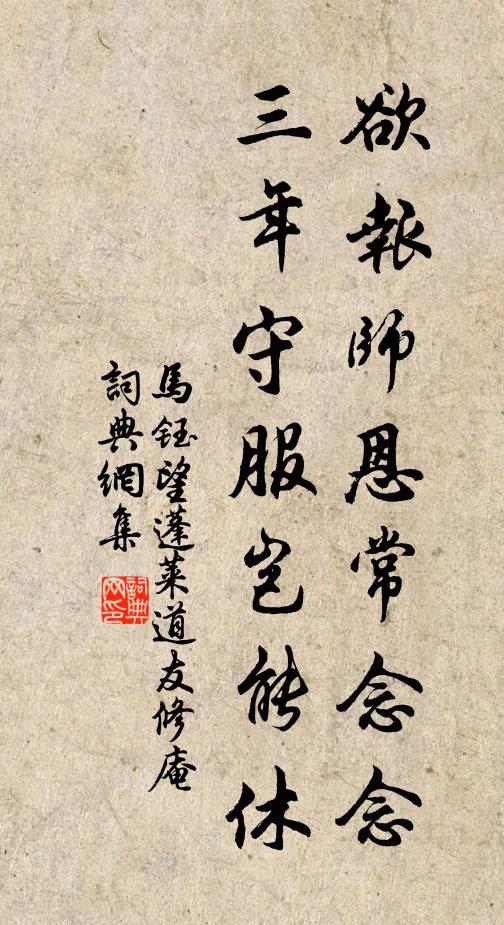 欲報師恩常念念
三年守服豈能休
馬鈺望蓬萊道友修庵
詞典網集
詞典網印